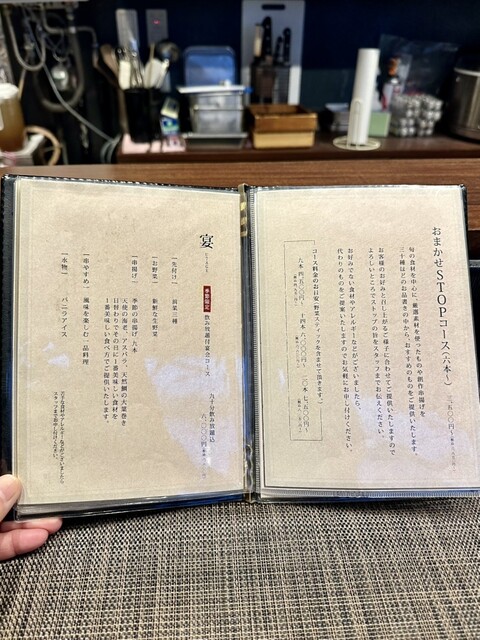 おまかせSTOPコース(六本〜)
旬の食材を中心に、厳選素材を使ったものや創作串揚げを
三十種ほどのお品書きの中から、おすすめのものをご提供いたします。
お客様のお好みと召し上がるご様子に合わせてご提供いたしますので
よろしいところでストップの旨をスタッフまでお伝えください。
お好みでない食材やアレルギーなどがございましたら、
代わりのものをご提案いたしますのでお気軽にお申し付けください。
コース料金のお目安(野菜スティックを含ませて頂きます。)
宴
季節限定 飲み放題付宴会コース
九十分飲み放題込
六、〇〇〇円
一先付け一 前菜三種
一お野菜一 新鮮な生野菜
一串揚げ一 季節の串揚げ 九本
天使の海老、アスパラ、天然鯛の大葉巻き
日替わりでその日に一番美味しい食材を
一番美味しい食べ方でご提供いたします。
一串やすめ一 風味を楽しむ一品料理
一水物一 バニラアイス
苦手な食材やアレルギーなどがございましたら
スタッフまでお申し付けください。